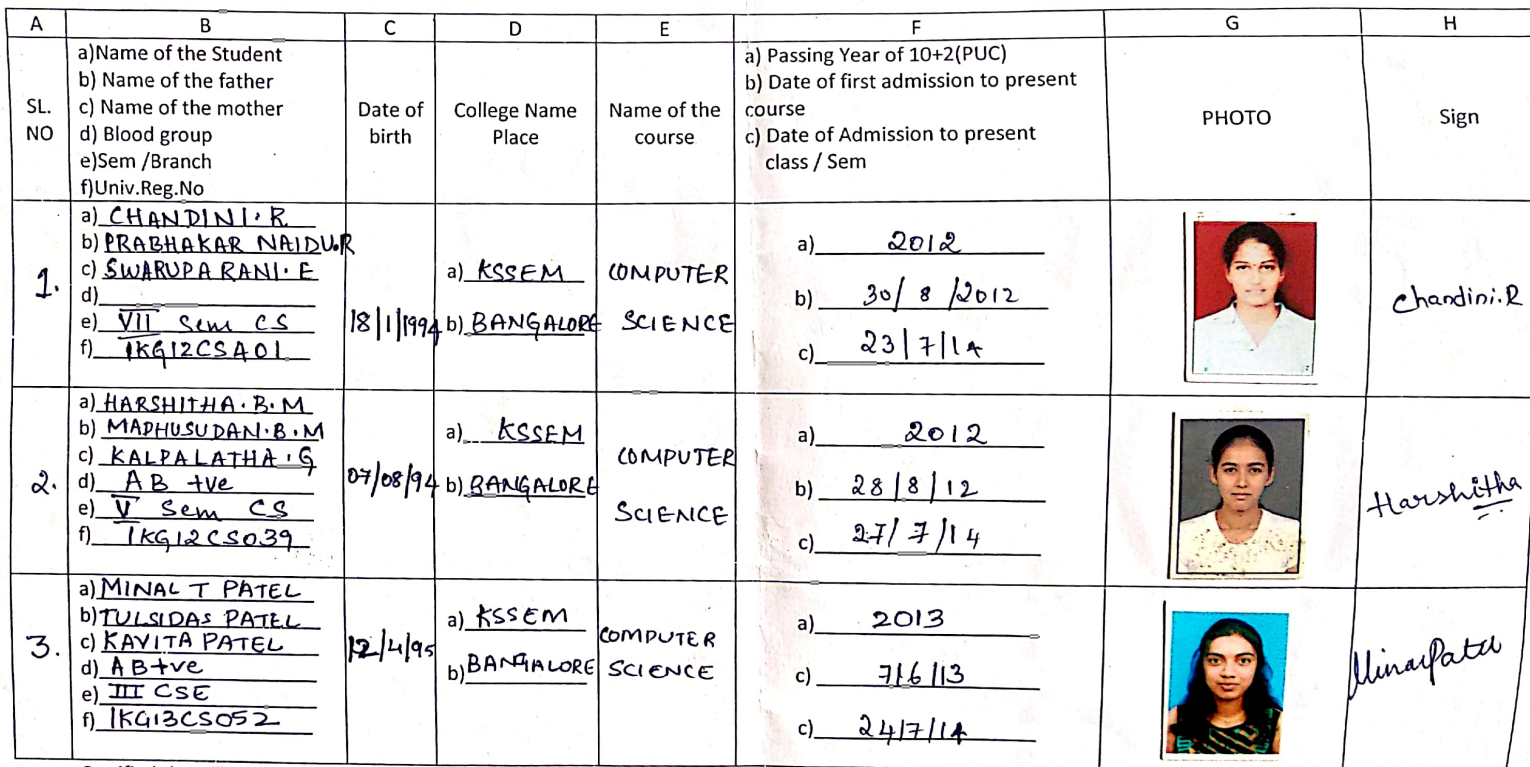 A B C D E F G H
SL. NO
a)Name of the Student
b) Name of the father
c) Name of the mother
d) Blood group
e)Sem /Branch
f)Univ.Reg.No
Date of birth
College Name Place
Name of the course
a) Passing Year of 10+2(PUC)
b) Date of first admission to present
course
c) Date of Admission to present
class / Sem
PHOTO
Sign
1.
a) CHANDINI.R
b) PRABHAKAR NAIDU.R
c) SWARUPA RANI.E
d)
e) VII Sem CS
f) 1KG12CSA01
18/1/1994
a) KSSEM
b) BANGALORE
COMPUTER
SCIENCE
a) 2012
b) 30/8/2012
c) 23/7/14
Chandini.R
2.
a) HARSHITHA.B.M
b) MADHUSUDAN.B.M
c) KALPALATHA.G
d) AB +ve
e) V Sem CS
f) 1KG12CS039
07/08/94
a) KSSEM
b) BANGALORE
COMPUTER
SCIENCE
a) 2012
b) 28/8/12
c) 27/7/14
Harshitha
3.
a) MINAL T PATEL
b) TULSIDAS PATEL
c) KAVITA PATEL
d) AB+ve
e) III CSE
f) 1KG13CS052
12/4/95
a) KSSEM
b) BANGALORE
COMPUTER
SCIENCE
a) 2013
c) 7/6/13
c) 24/7/14
Minal Patel